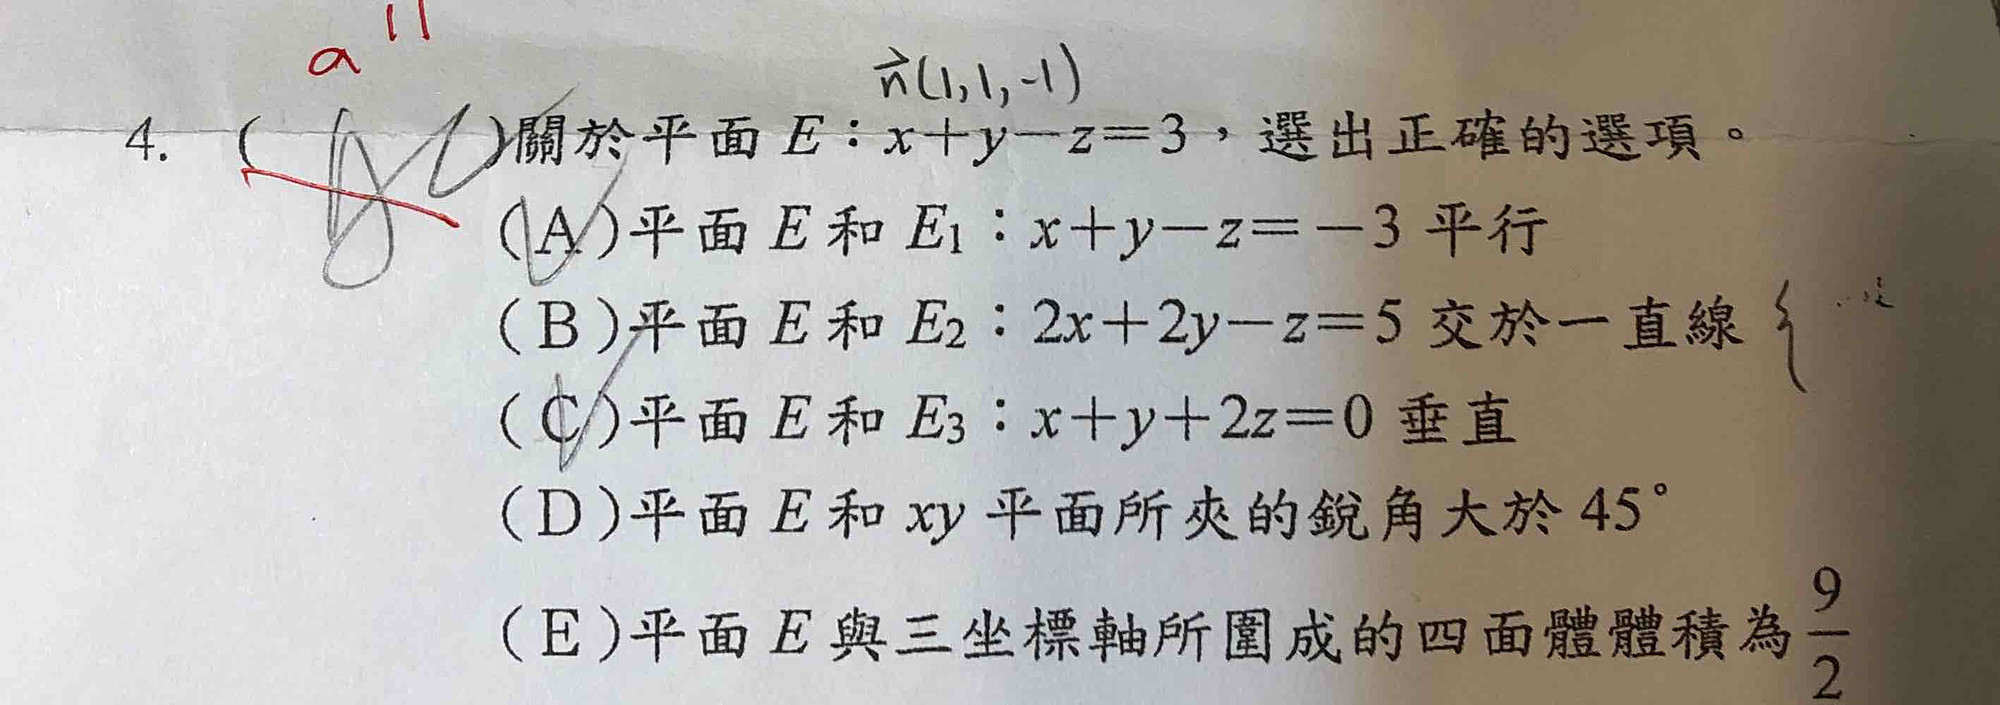 a
n⃗(1,1,-1)
4. ( )關於平面 E：x＋y－z＝3，選出正確的選項。
(A)平面 E 和 E₁：x＋y－z＝－3 平行
(B)平面 E 和 E₂：2x＋2y－z＝5 交於一直線
(C)平面 E 和 E₃：x＋y＋2z＝0 垂直
(D)平面 E 和 xy 平面所夾的銳角大於 45°
(E)平面 E 與三坐標軸所圍成的四面體體積為 9/2